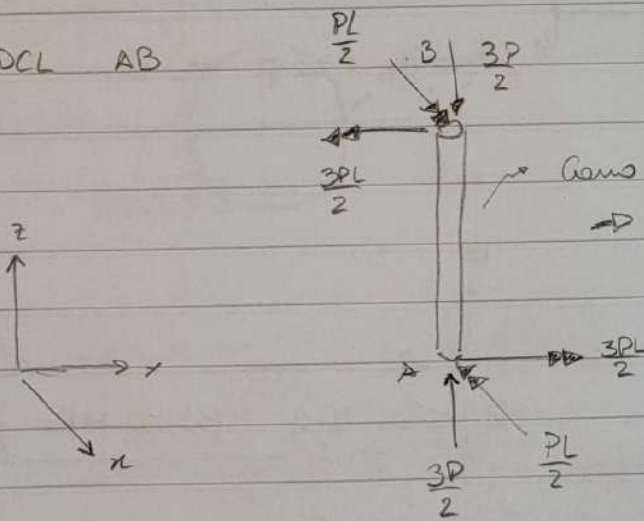 DCL AB
PL/2 B 3P/2
3PL/2
Como
z
y
x
A
3PL/2
PL/2
3P/2